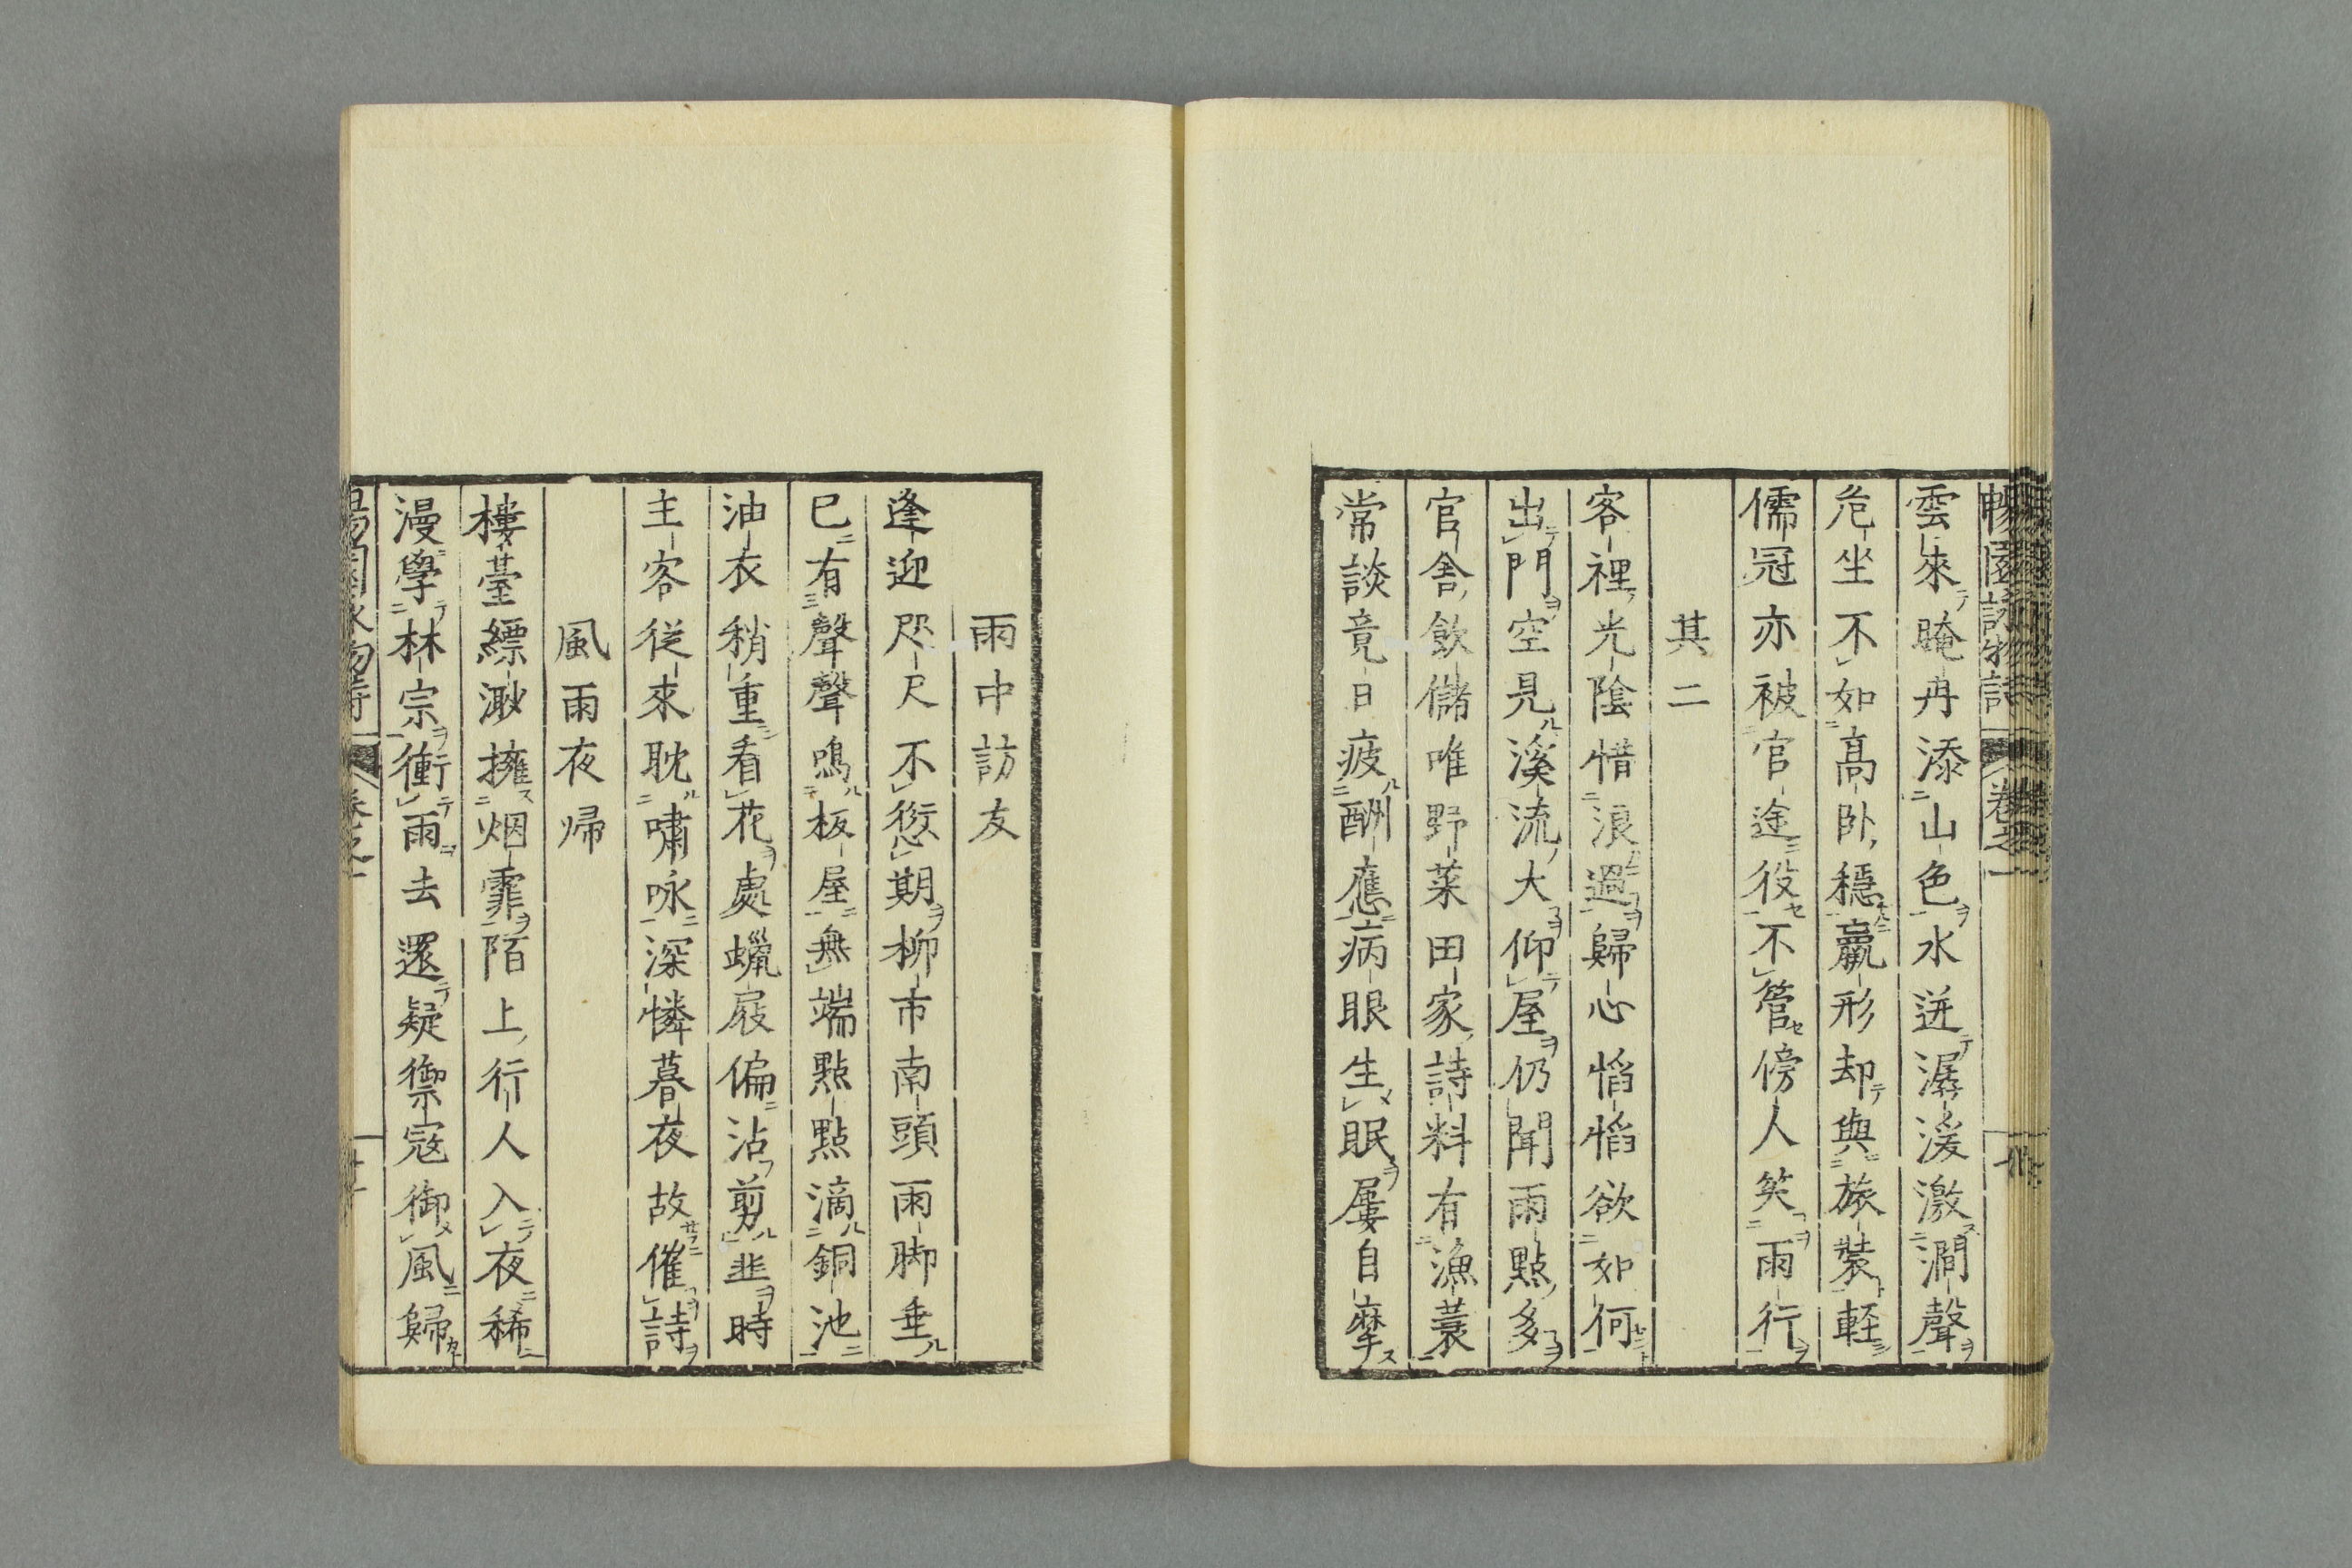 暢園詠物詩 卷之一
雲來腌冉添山色水迸潺湲激澗聲
危坐不如高臥穩羸形却與旅裝軽
儒冠亦被官途役不管傍人笑雨行
其二
客裡光陰惜浪過歸心慆慆欲如何
出門空見溪流大仰屋仍聞雨點多
官舍飲儲唯野菜田家詩料有漁蓑
常談竟日疲酬應病眼生眠屢自摩
雨中訪友
逢迎咫尺不愆期柳市南頭雨脚垂
已有聲聲鳴板屋無端點點滴銅池
油衣稍重看花處蠟屐偏沾剪韭時
主客従來耽嘯咏深憐暮夜故催詩
風雨夜帰
樓臺縹渺擁烟霏陌上行人入夜稀
漫學林宗衝雨去還疑禦寇御風歸